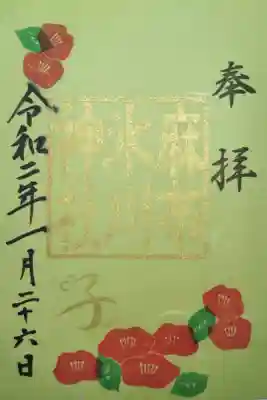 奉拝
子
令和二年一月二十六日